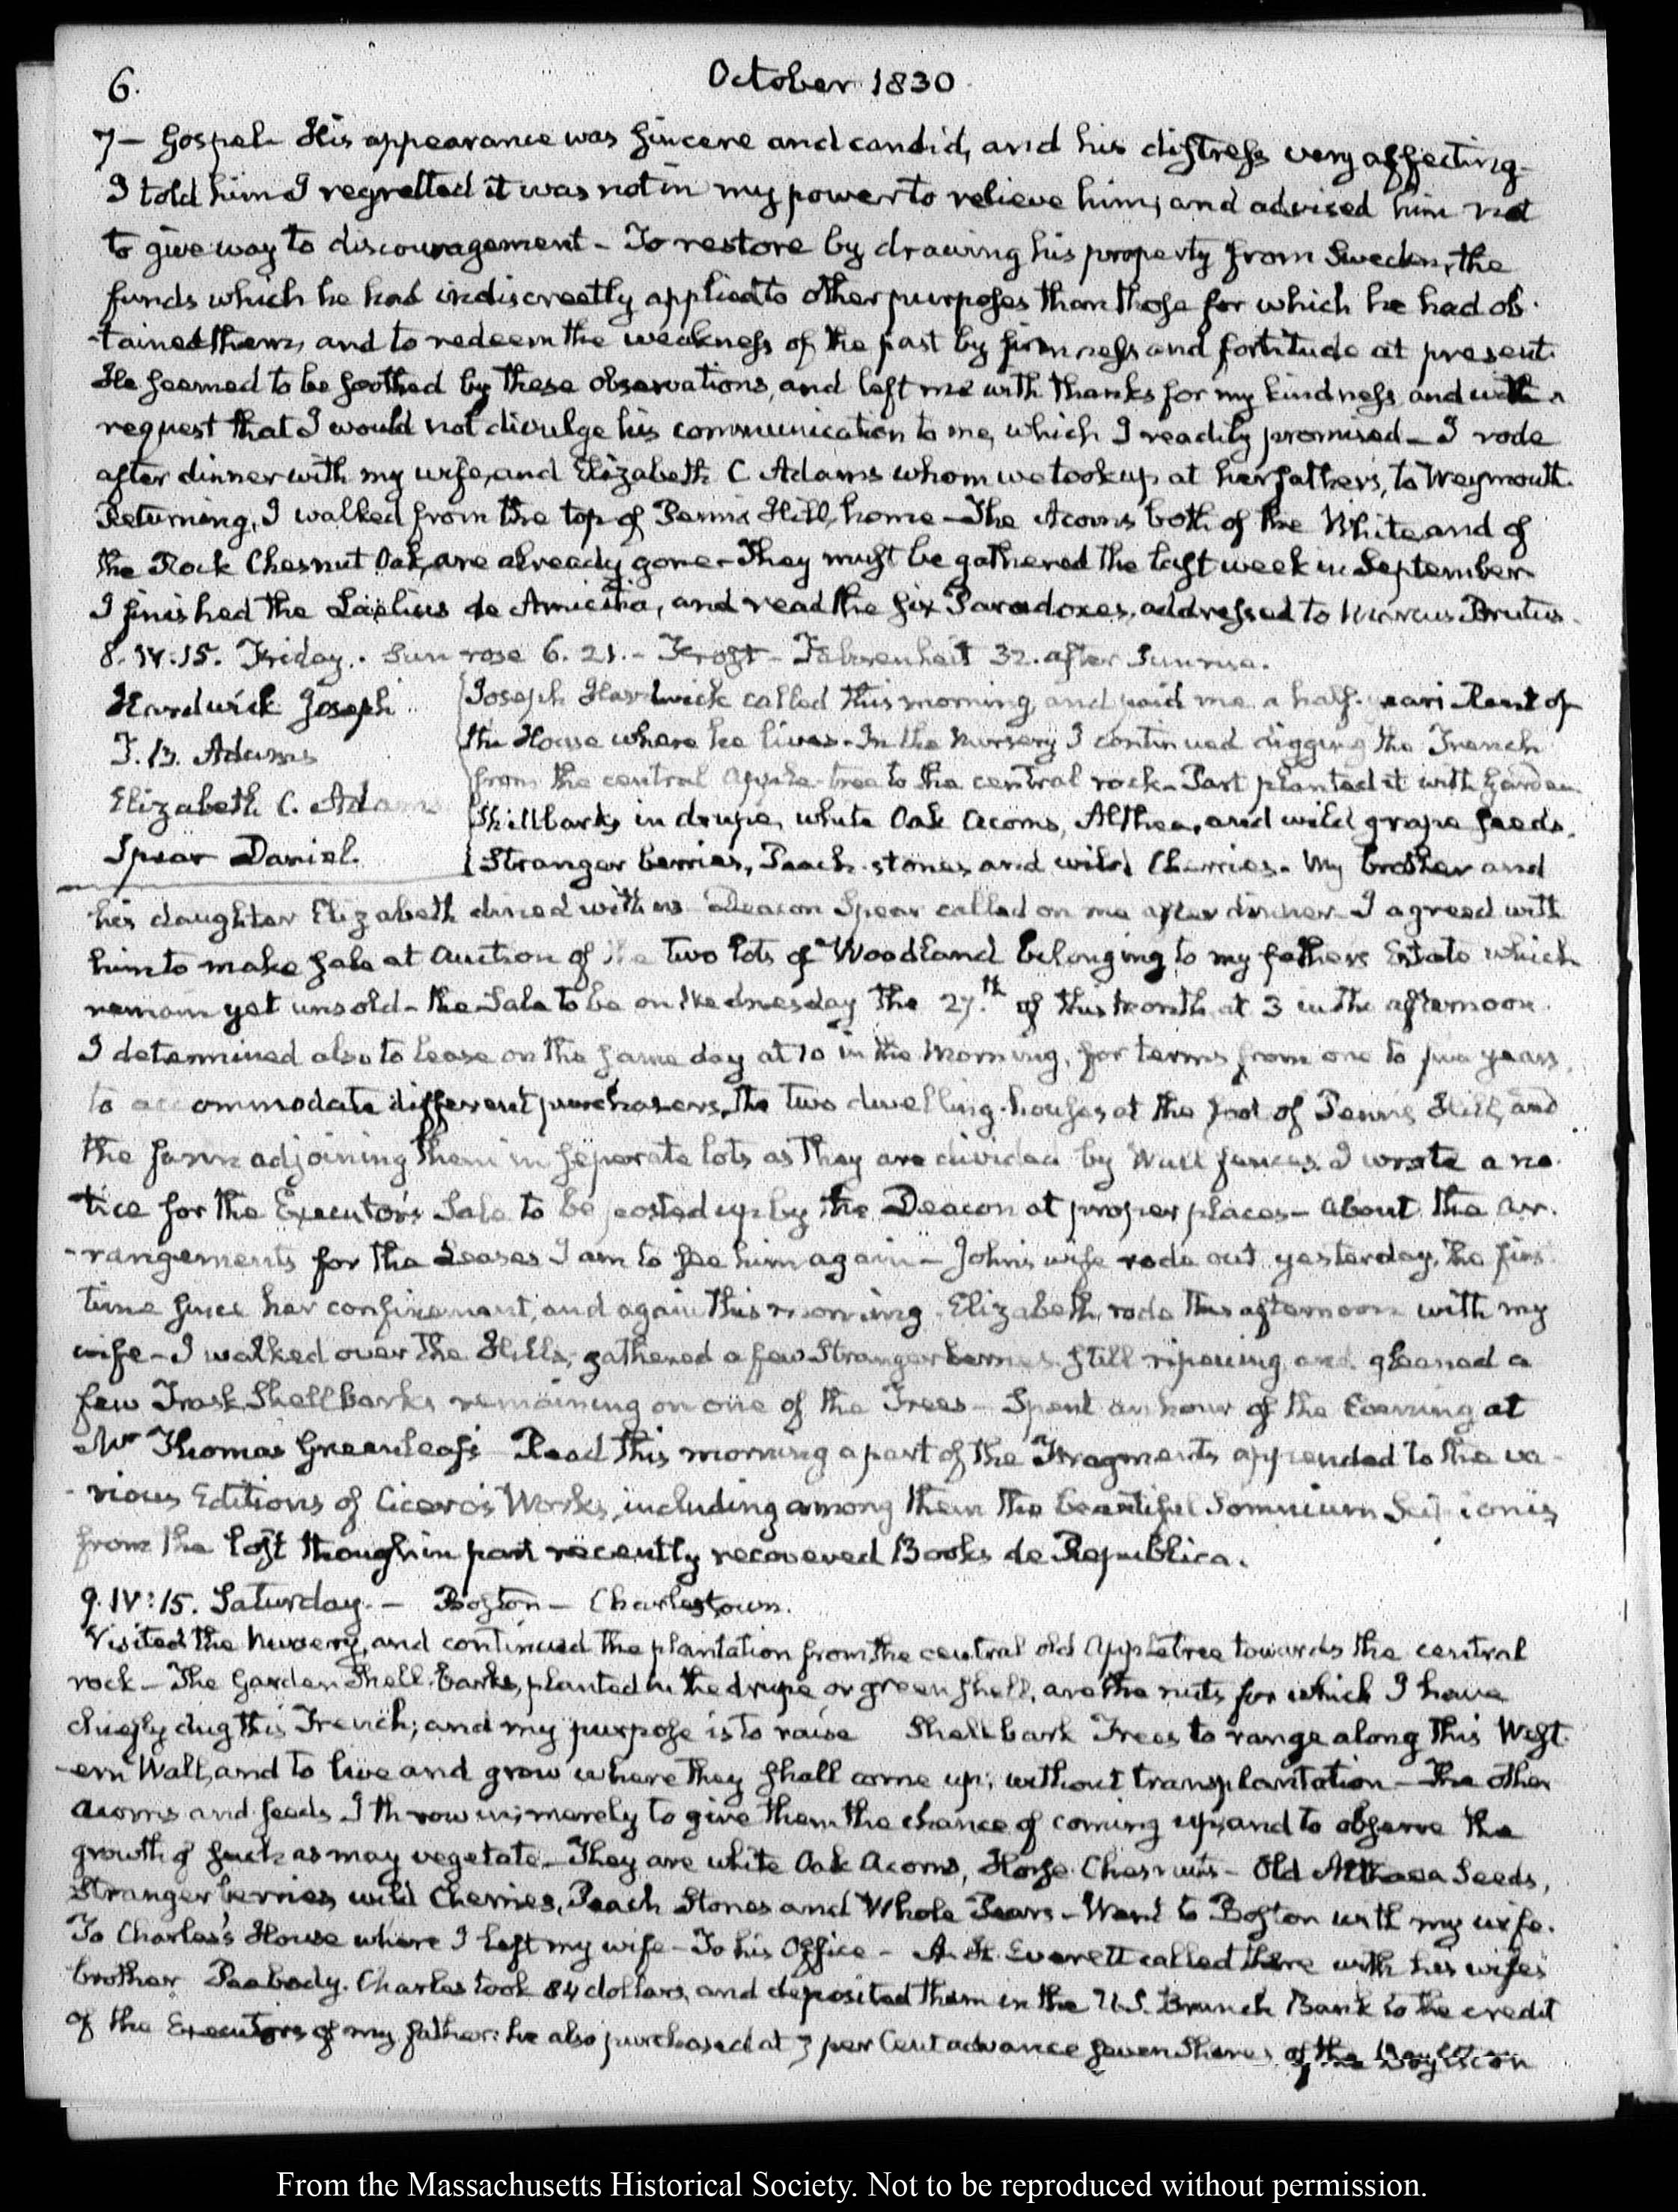 6.
October 1830
7 — Gospel. His appearance was sincere and candid, and his distress very affecting —
I told him I regretted it was not in my power to relieve him, and advised him not
to give way to discouragement — To restore by drawing his property from Sweden, the
funds which he had indiscreetly applied to other purposes than those for which he had ob-
-tained them, and to redeem the weakness of the past by firmness and fortitude at present.
He seemed to be soothed by these observations, and left me with thanks for my kindness and with a
request that I would not divulge his communication to me, which I readily promised — I rode
after dinner with my wife, and Elizabeth C Adams whom we took up at her fathers, to Weymouth.
Returning, I walked from the top of Penn's Hill, home — The Acorns both of the White and of
the Rock Chesnut Oak, are already gone — They must be gathered the last week in September
I finished the Laelius de Amicitia, and read the six Paradoxes, addressed to Marcus Brutus.
8. IV:15. Friday. Sun rose 6. 21. — Frost — Fahrenheit 32. after Sunrise.
Hardwick Joseph
T. B. Adams
Elizabeth C. Adams
Spear Daniel.
Joseph Hardwick called this morning, and paid me a half-years Rent of
the House where he lives — In the Nursery I continued digging the Trench
from the central Apple-tree to the central rock — Part planted it with Garden
Shellbarks in drupe, white Oak Acorns, Althea, and wild grape seeds.
Stranger berries, Peach-stones and wild Cherries. My brother and
his daughter Elizabeth dined with us Deacon Spear called on me after dinner — I agreed with
him to make sale at Auction of the two lots of Woodland belonging to my fathers Estate which
remain yet unsold — the Sale to be on Wednesday the 27.th of this month at 3 in the afternoon.
I determined also to lease on the same day at 10 in the Morning, for terms from one to five years,
to accommodate different purchasers, the two dwelling-houses at the foot of Penns Hill, and
the farm adjoining them in seperate lots as they are divided by Wall fences. I wrote a no-
tice for the Executor's Sale to be posted up by the Deacon at proper places — About the ar-
-rangements for the Leases I am to see him again — John's wife rode out yesterday, the first
time since her confinement, and again this morning. Elizabeth rode this afternoon with my
wife — I walked over the Hills, gathered a few Stranger berries still ripening, and gleaned a
few Trask Shellbarks remaining on one of the Trees — Spent an hour of the Evening at
Mr Thomas Greenleaf's Read this morning a part of the Fragments appended to the va-
-rious Editions of Cicero's Works, including among them the beautiful Somnium Scipionis
from the lost though in part recently recovered Books de Republica.
9. IV:15. Saturday. — Boston — Charlestown.
Visited the Nursery, and continued the plantation from the central old Appletree towards the central
rock — The Garden Shell-barks, planted in the drupe or green shell, are the nuts for which I have
chiefly dug this Trench; and my purpose is to raise Shellbark Trees to range along this West-
-ern Wall, and to live and grow where they shall come up, without transplantation — The other
acorns and seeds I throw in, merely to give them the chance of coming up, and to observe the
growth of such as may vegetate — They are white Oak Acorns, Horse Chesnuts — Old Althaea Seeds,
Stranger berries, wild Cherries, Peach Stones and Whole Pears — Went to Boston with my wife.
To Charles's House where I left my wife — To his Office — A. H. Everett called there with his wifes
brother Peabody. Charles took 84 dollars, and deposited them in the U.S. Branch Bank to the credit
of the Executors of my father: he also purchased at 3 per Cent advance seven Shares of the Boylston
From the Massachusetts Historical Society. Not to be reproduced without permission.